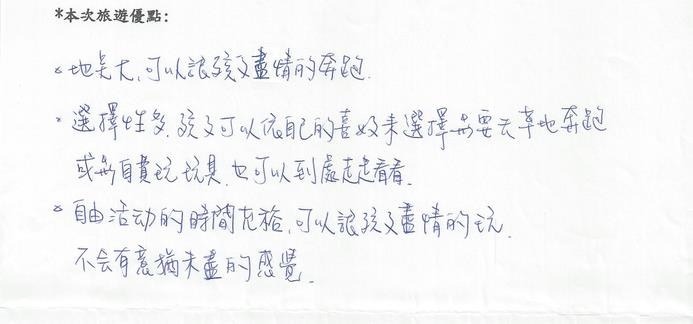 *本次旅遊優點:
* 地点大,可以讓孩子盡情的奔跑.
* 選擇性多.孩子可以依自己的喜好來選擇需要去草地奔跑
或需自費玩玩具.也可以到處走走看看.
* 自由活动的時間充裕,可以讓孩子盡情的玩.
不会有意猶未盡的感覺.